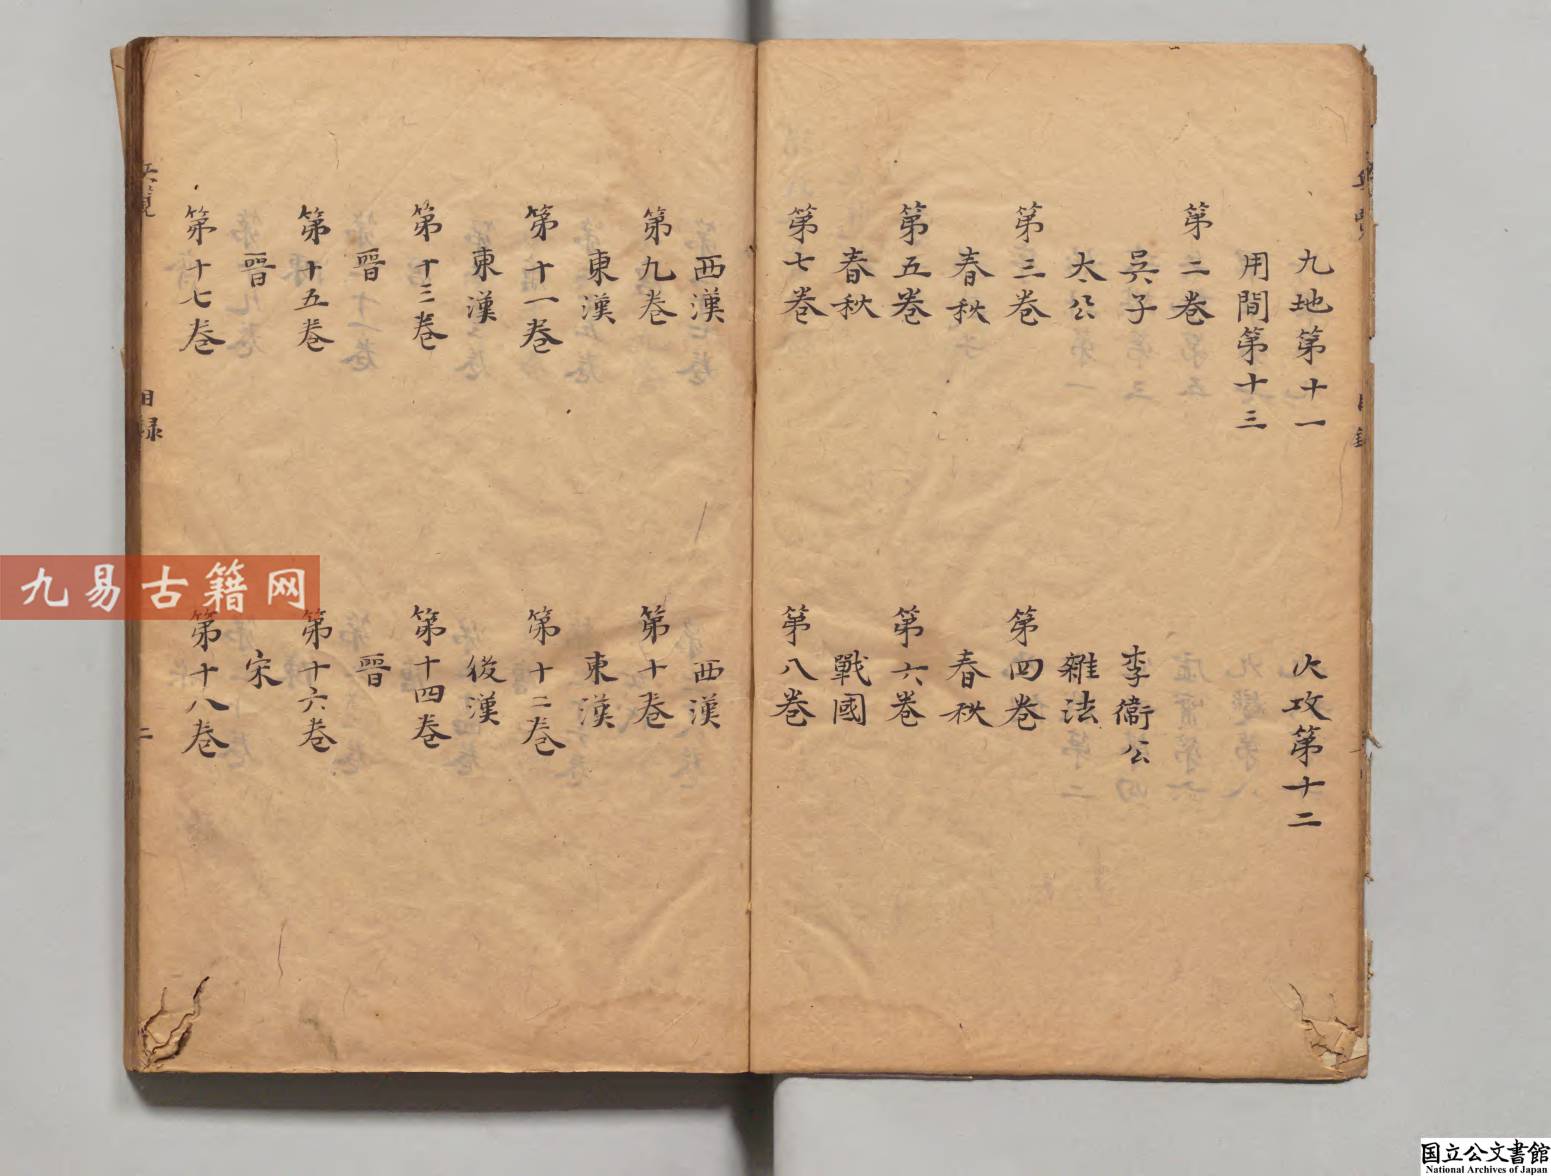 九地第十一
火攻第十二
用間第十三
第二卷
吳子
李衞公
太公
雜法
第三卷
第四卷
春秋
春秋
第五卷
第六卷
春秋
戰國
第七卷
第八卷
西漢
西漢
第九卷
第十卷
東漢
東漢
第十一卷
第十二卷
東漢
後漢
第十三卷
第十四卷
晉
晉
第十五卷
第十六卷
晉
宋
第十七卷
第十八卷
目録
二
九易古籍网
国立公文書館
National Archives of Japan